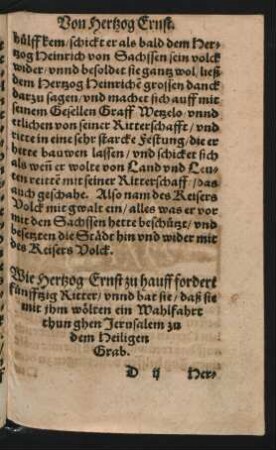 Von Hertzog Ernst.
hülff kem / schickt er als bald dem Her-
tzog Heinrich von Sachssen sein volck
wider / vnnd besoldet sie gantz wol, ließ
dem Hertzog Heinrichē grossen danck
dartzu sagen / vnd machet sich auff mit
seinem Gesellen Graff Wetzelo / vnnd
etlichen von seiner Ritterschafft / vnd
ritte in eine sehr starcke Festung / die er
hette bauwen lassen / vnd schicket sich
als weñ er wolte von Land vnd Leu-
ten reitte mit seiner Ritterschaff / das
auch geschahe. Also nam des Keisers
Volck mit gwalt ein / alles was er vor
mit den Sachssen hette beschützt / vnd
besetzten die Städt hin vnd wider mit
des Keisers Volck.
Wie Hertzog Ernst zu hauff fordert
fünfftzig Ritter / vnnd bat sie / daß sie
mit jhm wölten ein Wahlfahrt
thun ghen Jerusalem zu
dem Heiligen
Grab.
D ij Her-